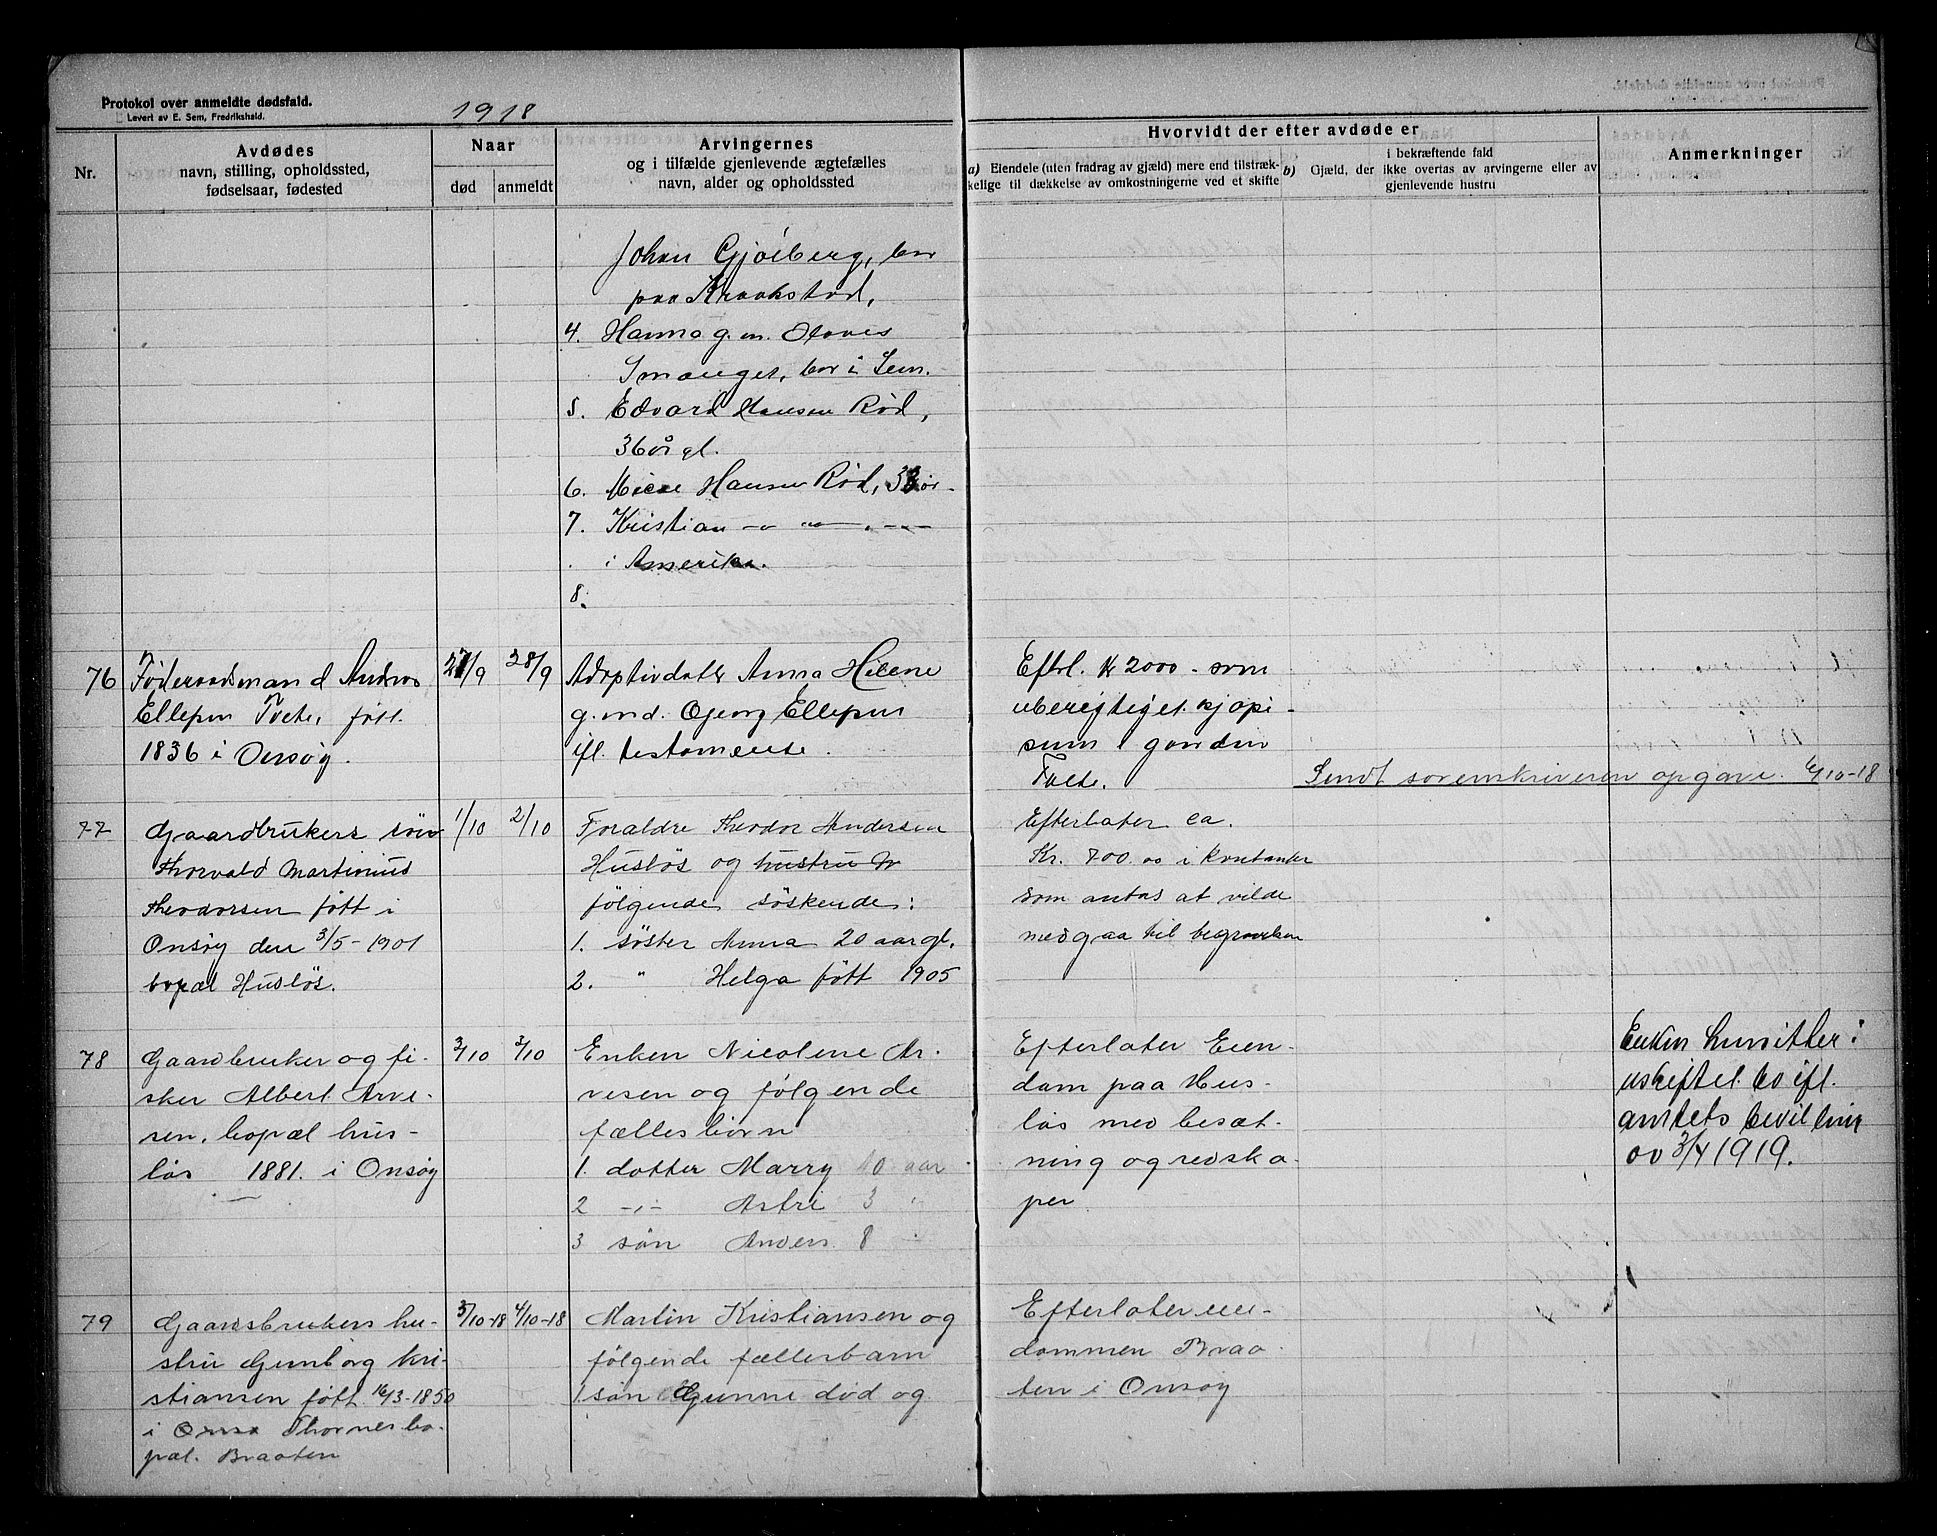 Protokol over anmeldte dødsfald.
Levert av E. Sem, Fredrikshald.
1918
Nr.
Avdødes
navn, stilling, opholdssted,
fødselsaar, fødested
Naar
død
anmeldt
Arvingernes
og i tilfælde gjenlevende ægtefælles
navn, alder og opholdssted
Hvorvidt der efter avdøde er
a) Eiendele (uten fradrag av gjæld) mere end tilstræk-
kelige til dækkelse av omkostningerne ved et skifte
i bekræftende fald
b) Gjæld, der ikke overtas av arvingerne eller av
gjenlevende hustru
Anmerkninger
Johan Gjölberg, bor
paa Kraakstad,
4. Hanna g.m.
bor i Sem.
5. Edvard Hansen Rød,
36 år gl.
6. Hansen Rød, 33 år.
7. Kristian -"- -"-
i Amerika.
8.
76
Føderaadsmand Andreas
Ellefsen Tvete, født
1836 i Onsøy.
27/9
28/9
Adoptivdatter Anna Helene
g. m. d. Georg Ellefsen
ifl. testamente.
Efterl. Kr 2000 - som
uberigtiget kjøpe-
sum i gaarden
Tvete.
Sendt sorenskriveren opgave 6/10-18
77
Gaardbrukers søn
Thorvald Martinius
Theodorsen født i
Onsøy den 3/5-1901
bopæl Husløs.
1/10
2/10
Foraldre Theodor Andersen
Husløs og hustru
følgende søskende:
1. søster Anna 20 aar gl.
2. " Helga født 1905
Efterlater ca.
Kr. 700.00 i kontanter
som antas at vilde
medgaa til begravelsen
78
Gaardbruker og fi-
sker Albert Arve-
sen, bopæl hus-
løs 1881. i Onsøy
2/10
3/10
Enken Nicoline Ar-
vesen og følgende
fællesbørn
1. dotter Marry 10 aar
2 -"- Astri 3 "
3 søn Anders 8 "
Efterlater Eien-
dom paa Hus-
løs med besæt-
ning og redska-
per
Enken hensitter i
uskiftet bo ifl.
amtets bevilling
av 3/4 1919.
79
Gaardsbrukers hu-
stru Gunborg Kri-
stiansen født 16/3-1850
i Onsø Thornes bo-
pæl. Braaten
3/10-18
4/10-18
Martin Kristiansen og
følgende fællesbarn
1 søn Gunne død og
Efterlater eien-
dommen Braa-
ten i Onsøy